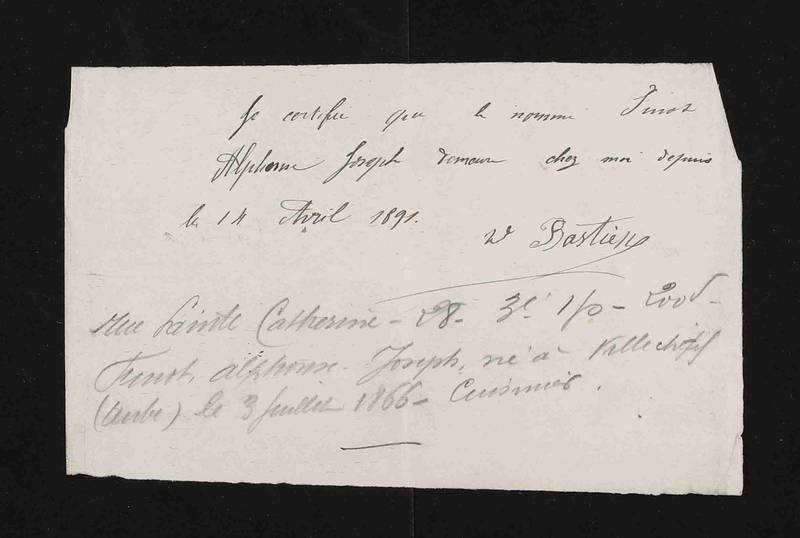 Je certifie que le nommé Finot
Alphonse Joseph demeure chez moi depuis
le 14 Avril 1891.
Bastien
Rue Sainte Catherine - 28 - 3e 1 p -
Finot, alphonse - Joseph, né à Villechétif
(Aube) le 3 Juillet 1866 - Cuisinier.